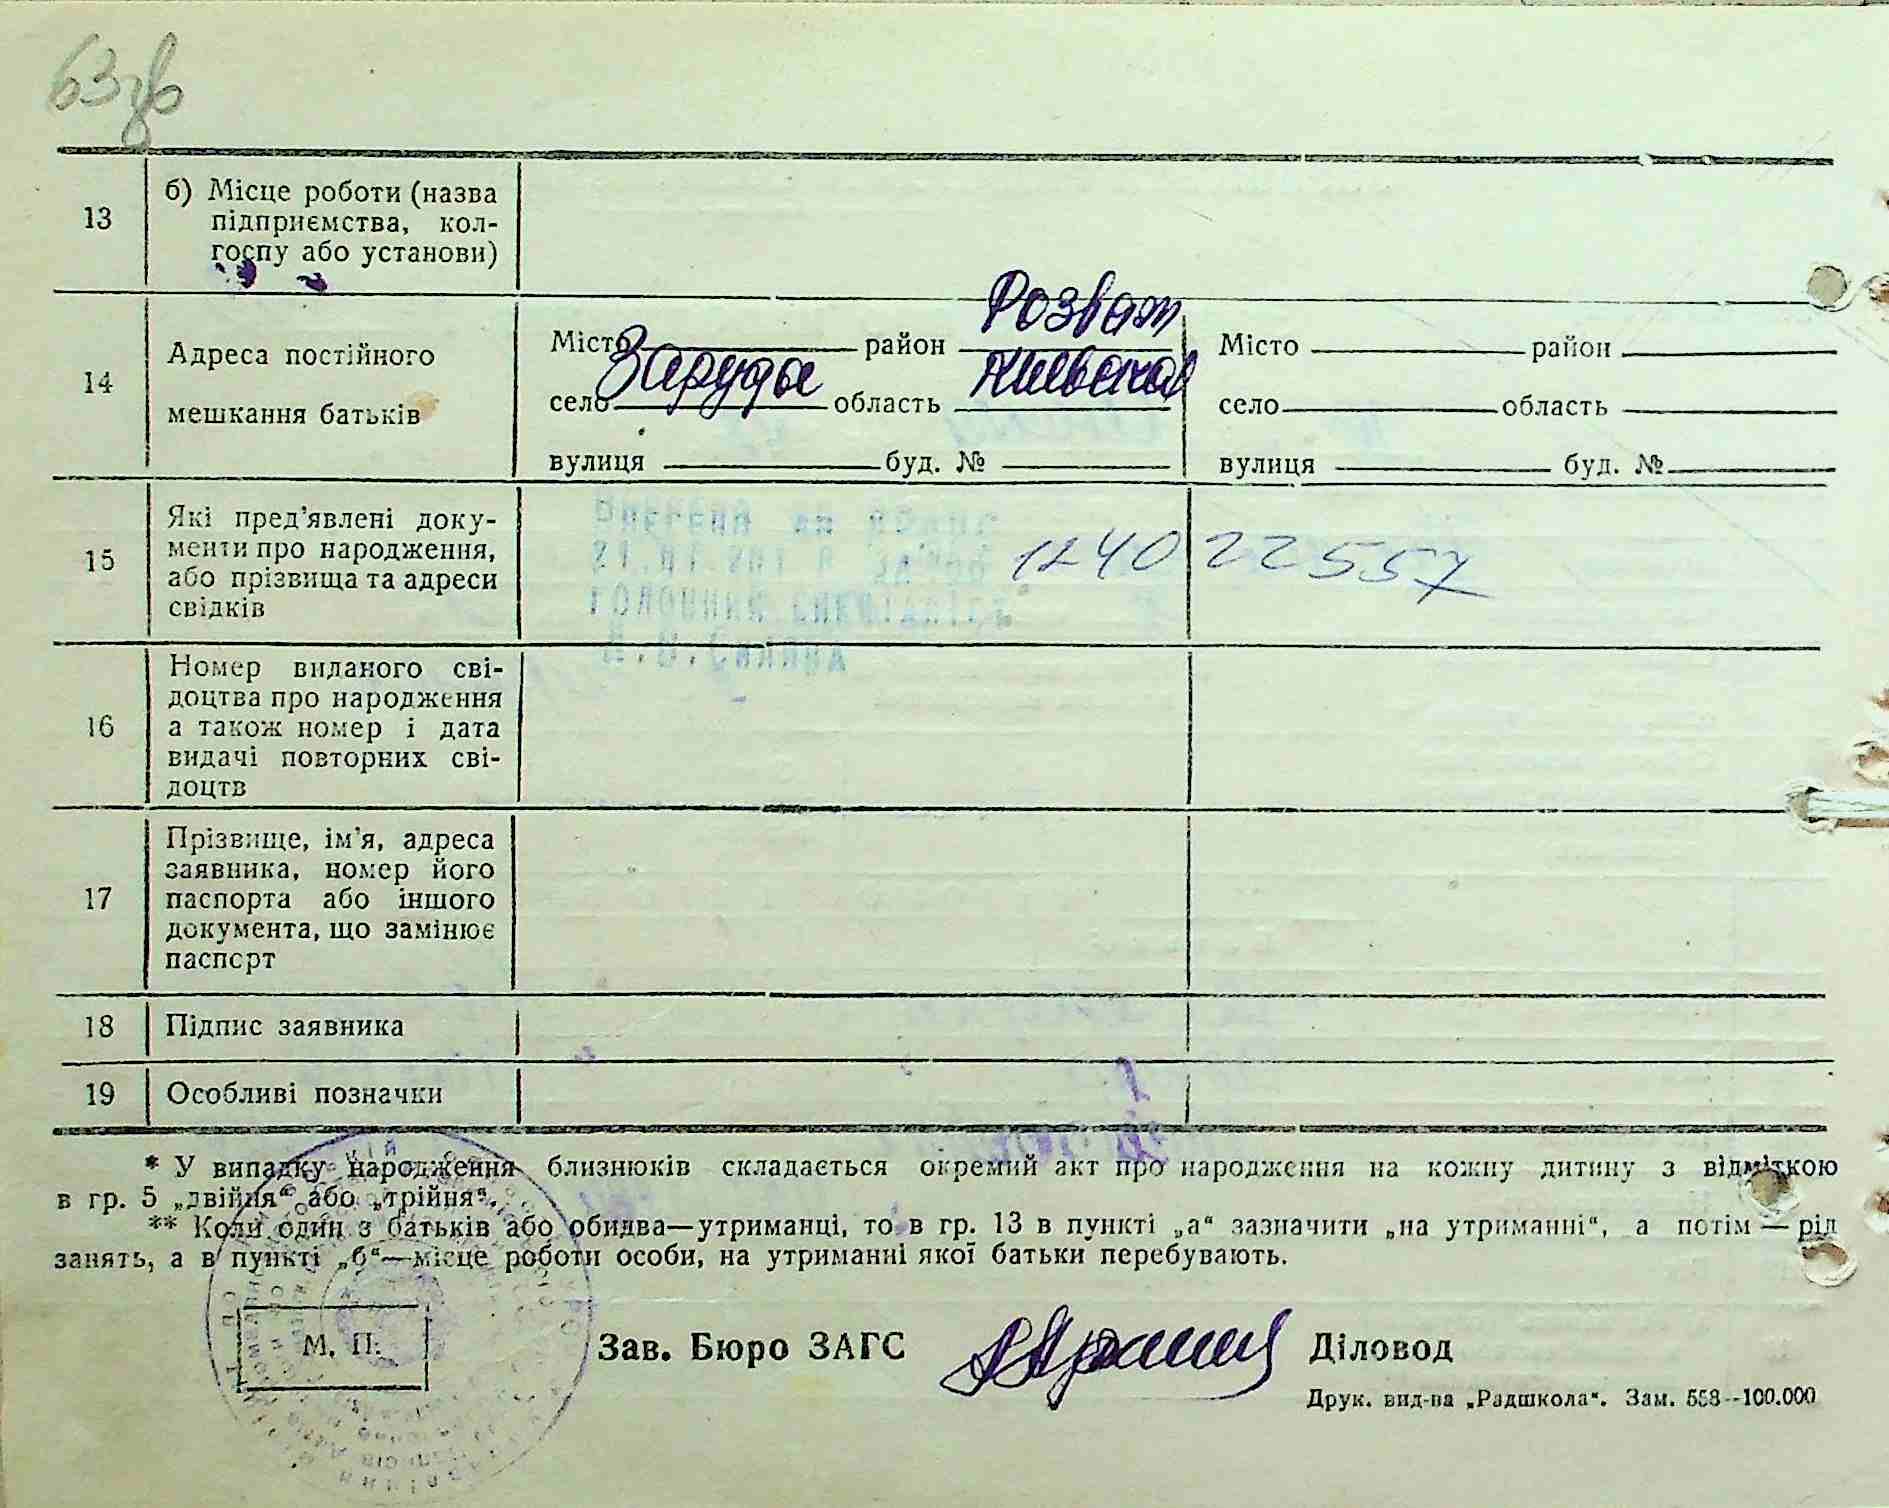 63зв
13 б) Місце роботи (назва
підприємства, кол-
госпу або установи)
14 Адреса постійного
мешкання батьків
Місто район Розваж Місто район
село Заруддя область Київська село область
вулиця буд. № вулиця буд. №
15 Які пред'явлені доку-
менти про народження,
або прізвища та адреси
свідків
12402 22557
головний спеціаліст
16 Номер виданого сві-
доцтва про народження
а також номер і дата
видачі повторних сві-
доцтв
17 Прізвище, ім'я, адреса
заявника, номер його
паспорта або іншого
документа, що замінює
паспорт
18 Підпис заявника
19 Особливі позначки
* У випадку народження близнюків складається окремий акт про народження на кожну дитину з відміткою
в гр. 5 „двійня“ або „трійня“.
** Коли один з батьків або обидва—утриманці, то в гр. 13 в пункті „а“ зазначити „на утриманні“, а потім — рід
занять, а в пункті „б“—місце роботи особи, на утриманні якої батьки перебувають.
М. П.
Зав. Бюро ЗАГС Діловод
Друк. вид-ва „Радшкола“. Зам. 558--100.000